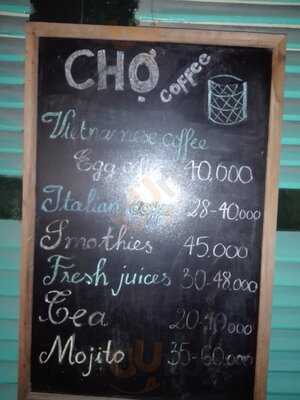 CHỢ
Coffee
Vietnamese coffee
Egg coffee 40,000
Italian coffee 28-40,000
Smothies 45.000
Fresh juices 30-48,000
Tea 20-40,000
Mojito 35-60,000